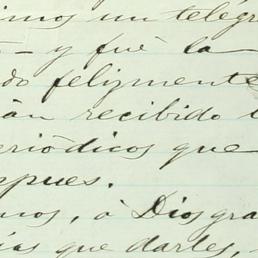 imos un telégr
- y fué la
do felizmente
án recibido
eriódicos que
spues.
mos, á Dios gra
ias que darles,